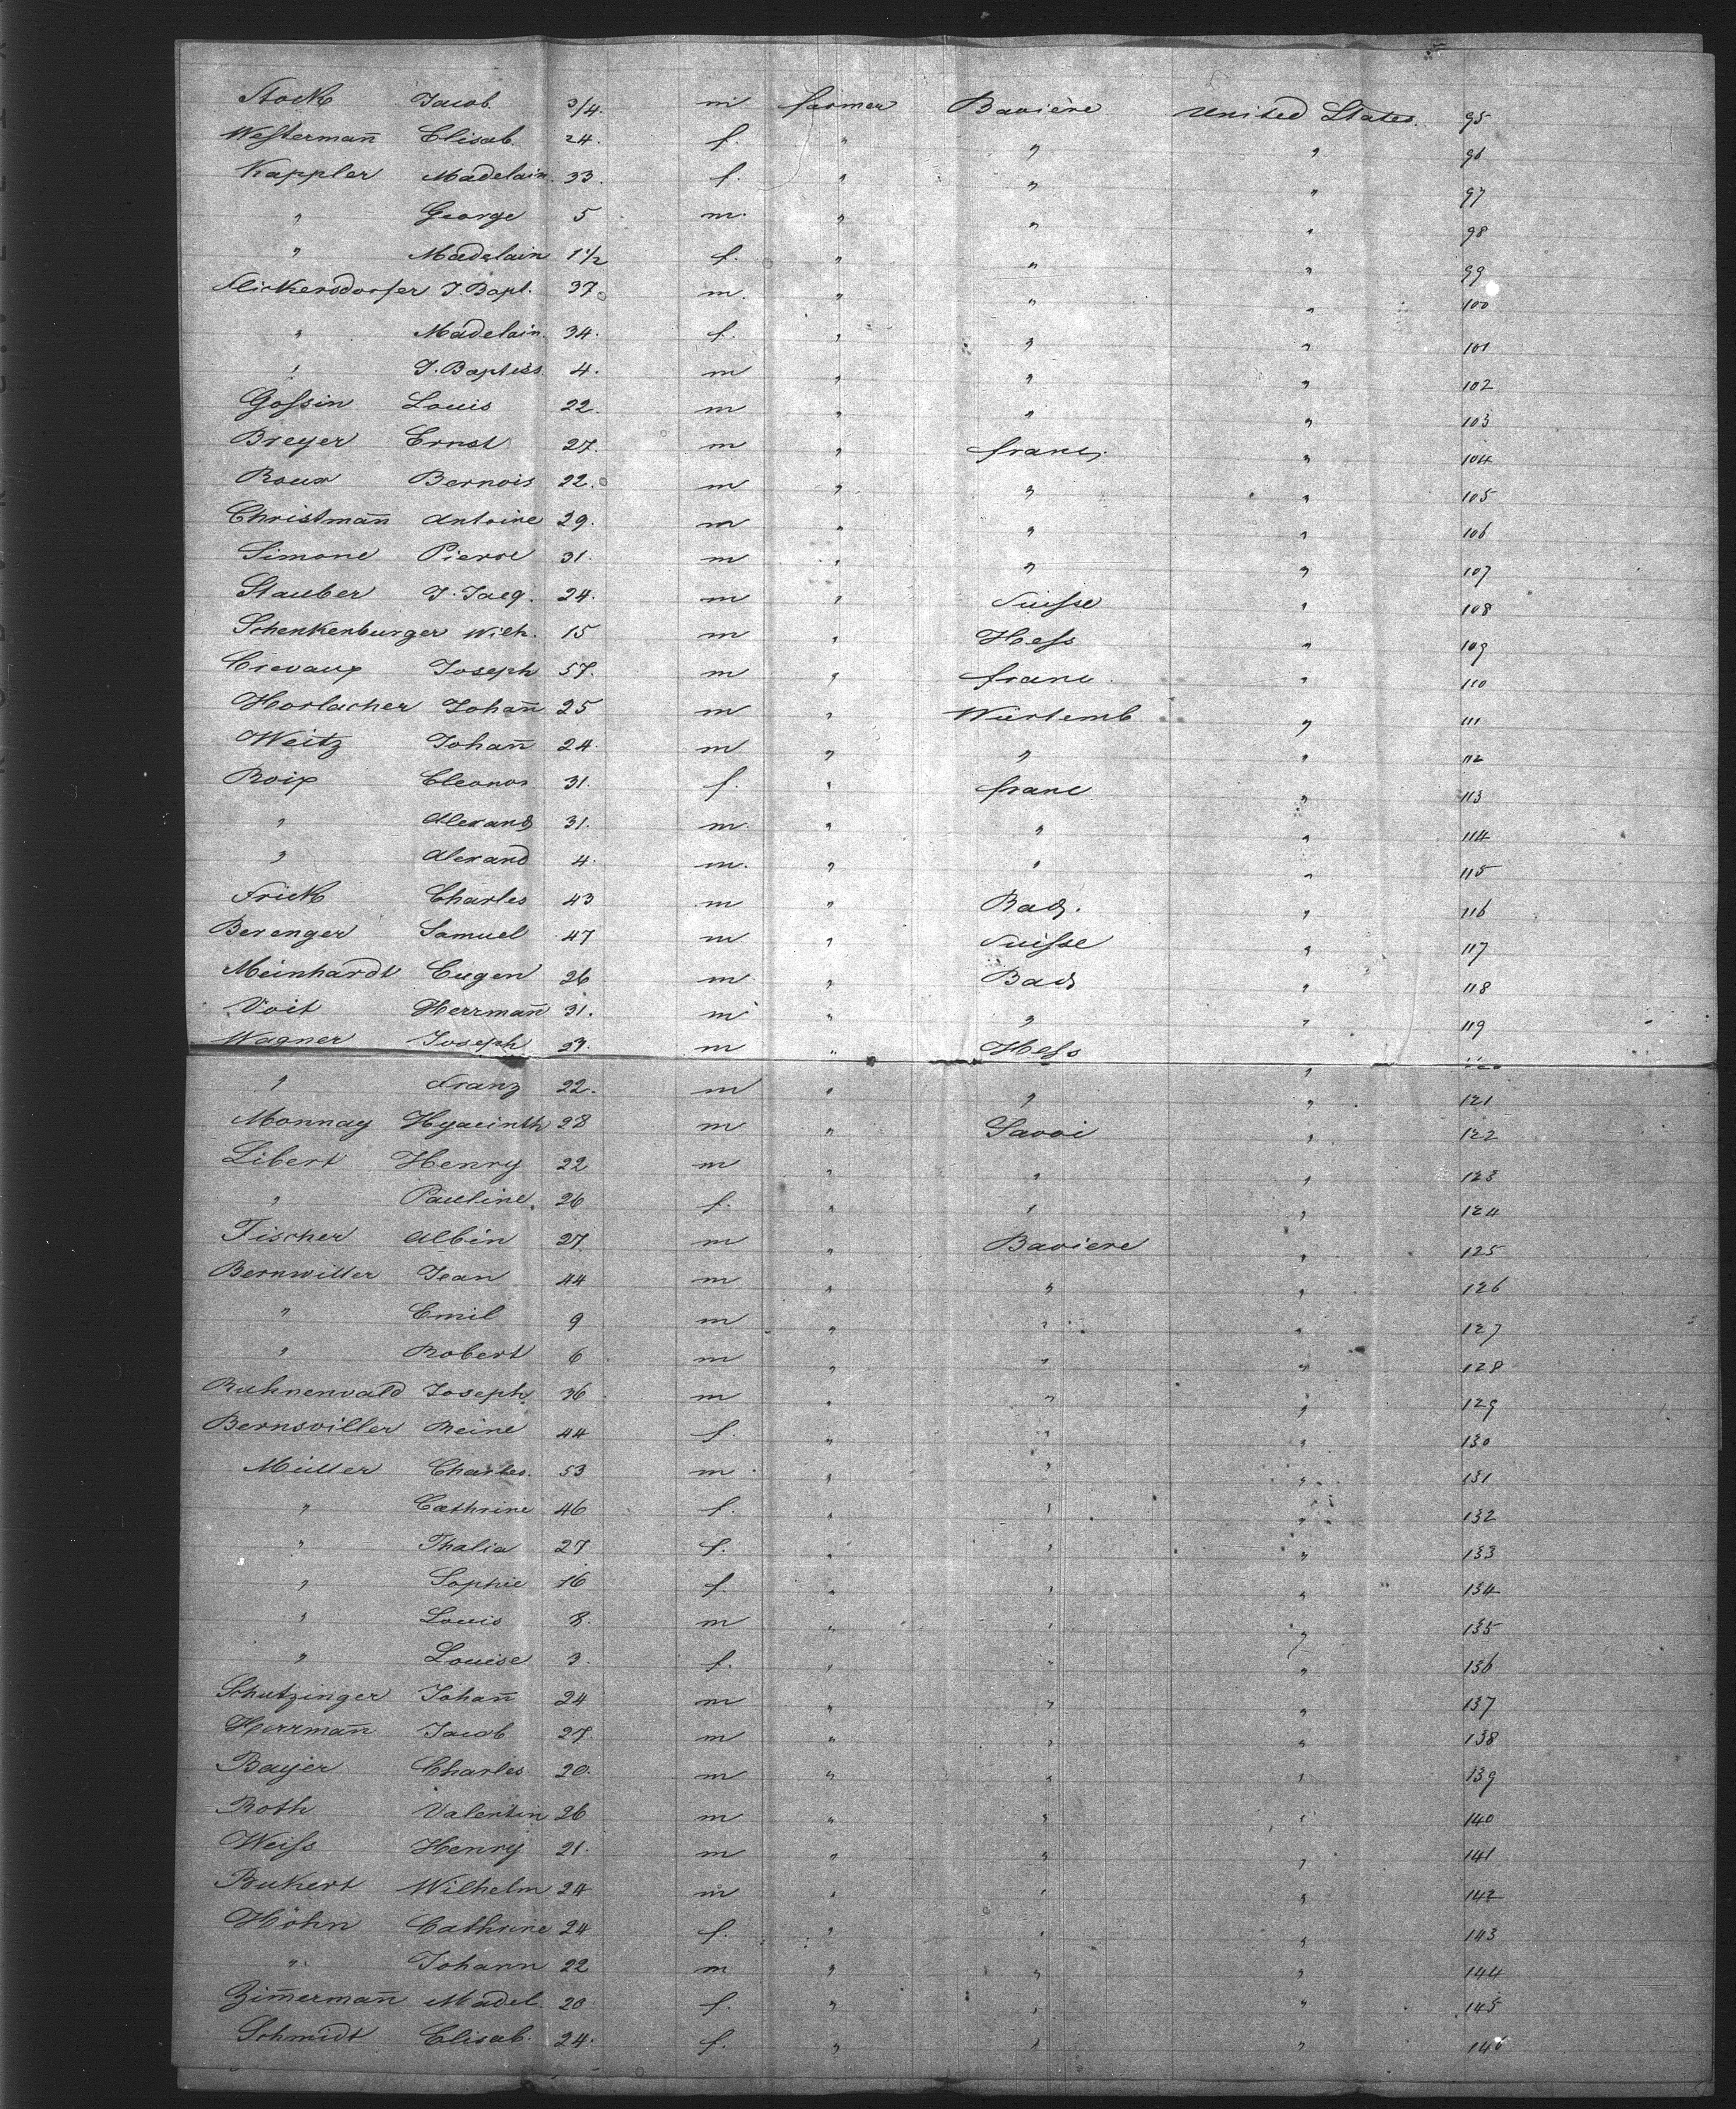 Stock Jacob 3/4. m farmer Bavière United States. 95
Westermañ Elisab. 24. f. " " " 96
Kappler Madelain. 33. f. " " " 97
" George 5 m. " " " 98
" Madelain 1 1/2 f. " " " 99
Flickersdorfer J. Bapt. 37. m. " " " 100
" Madelain. 34. f. " " " 101
" J. Baptiss. 4. m " " " 102
Gossin Louis 22. m " " " 103
Breyer Ernst 27. m " franç. " 104
Roux Bernois 22. m " " " 105
Christmañ Antoine 29. m " " " 106
Simone Pierre 31. m " " " 107
Stauber J. Jacq. 24. m " Suisse " 108
Schenkenburger Wilh. 15 m " Hess " 109
Crevaux Joseph 57. m " franc " 110
Horlacher Johañ 25 m " Wurtemb " 111
Weitz Johañ 24. m " " " 112
Roix Eleonor. 31. f. " franc " 113
" Alexand 31. m. " " " 114
" Alexand 4. m. " " " 115
Frick Charles 43 m " Bad. " 116
Berenger Samuel 47 m " Suisse " 117
Meinhardt Eugen 26 m. " Bad " 118
Voit Herrmañ 31. m " " " 119
Wagner Joseph 27. m " Hess "
" Franz 22. m " " " 121
Monnay Hyacinth 28 m " Savoi " 122
Libert Henry 22 m " " " 123
" Pauline. 26 f. " " " 124
Fischer Albin 27. m " Baviere " 125
Bernwiller Jean 44 m " " " 126
" Emil 9 m " " " 127
" Robert 6 m " " " 128
Ruhnenvald Joseph 36 m " " " 129
Bernsviller Reine 44 f. " " " 130
Müller Charles. 53 m " " " 131
" Cathrine 46 f. " " " 132
" Thalia 27 f. " " " 133
" Sophie 16 f. " " " 134
" Louis 8. m " " " 135
" Louise 3. f. " " " 136
Schutzinger Johañ 24 m " " " 137
Herrmañ Jacob 27. m " " " 138
Bayer Charles 20. m " " " 139
Roth Valentin 26 m " " " 140
Weiss Henry 21. m " " " 141
Bukert Wilhelm 24 m " " " 142
Höhn Cathrine 24 f. " " " 143
" Johann 22 m " " " 144
Zim̃ermañ Madel. 20 f. " " " 145
Schmidt Elisab. 24. f. " " " 146